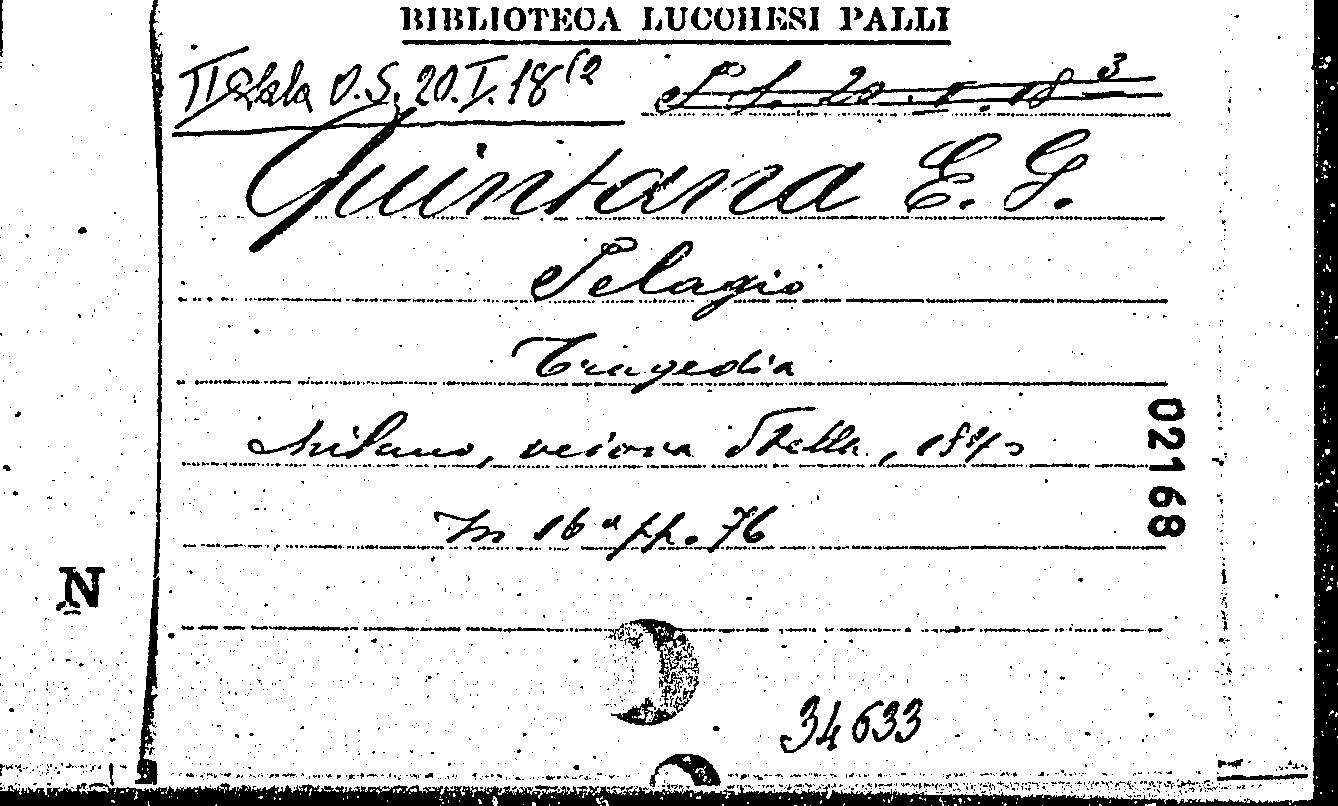 BIBLIOTECA LUCCHESI PALLI
II Sala O.S. 20.I.18(2
20. I. 18 3
Quintana E. G.
Pelagio
Tragedia
Milano, vedova Stella, 184
In 16° pp. 76
02168
N
34633